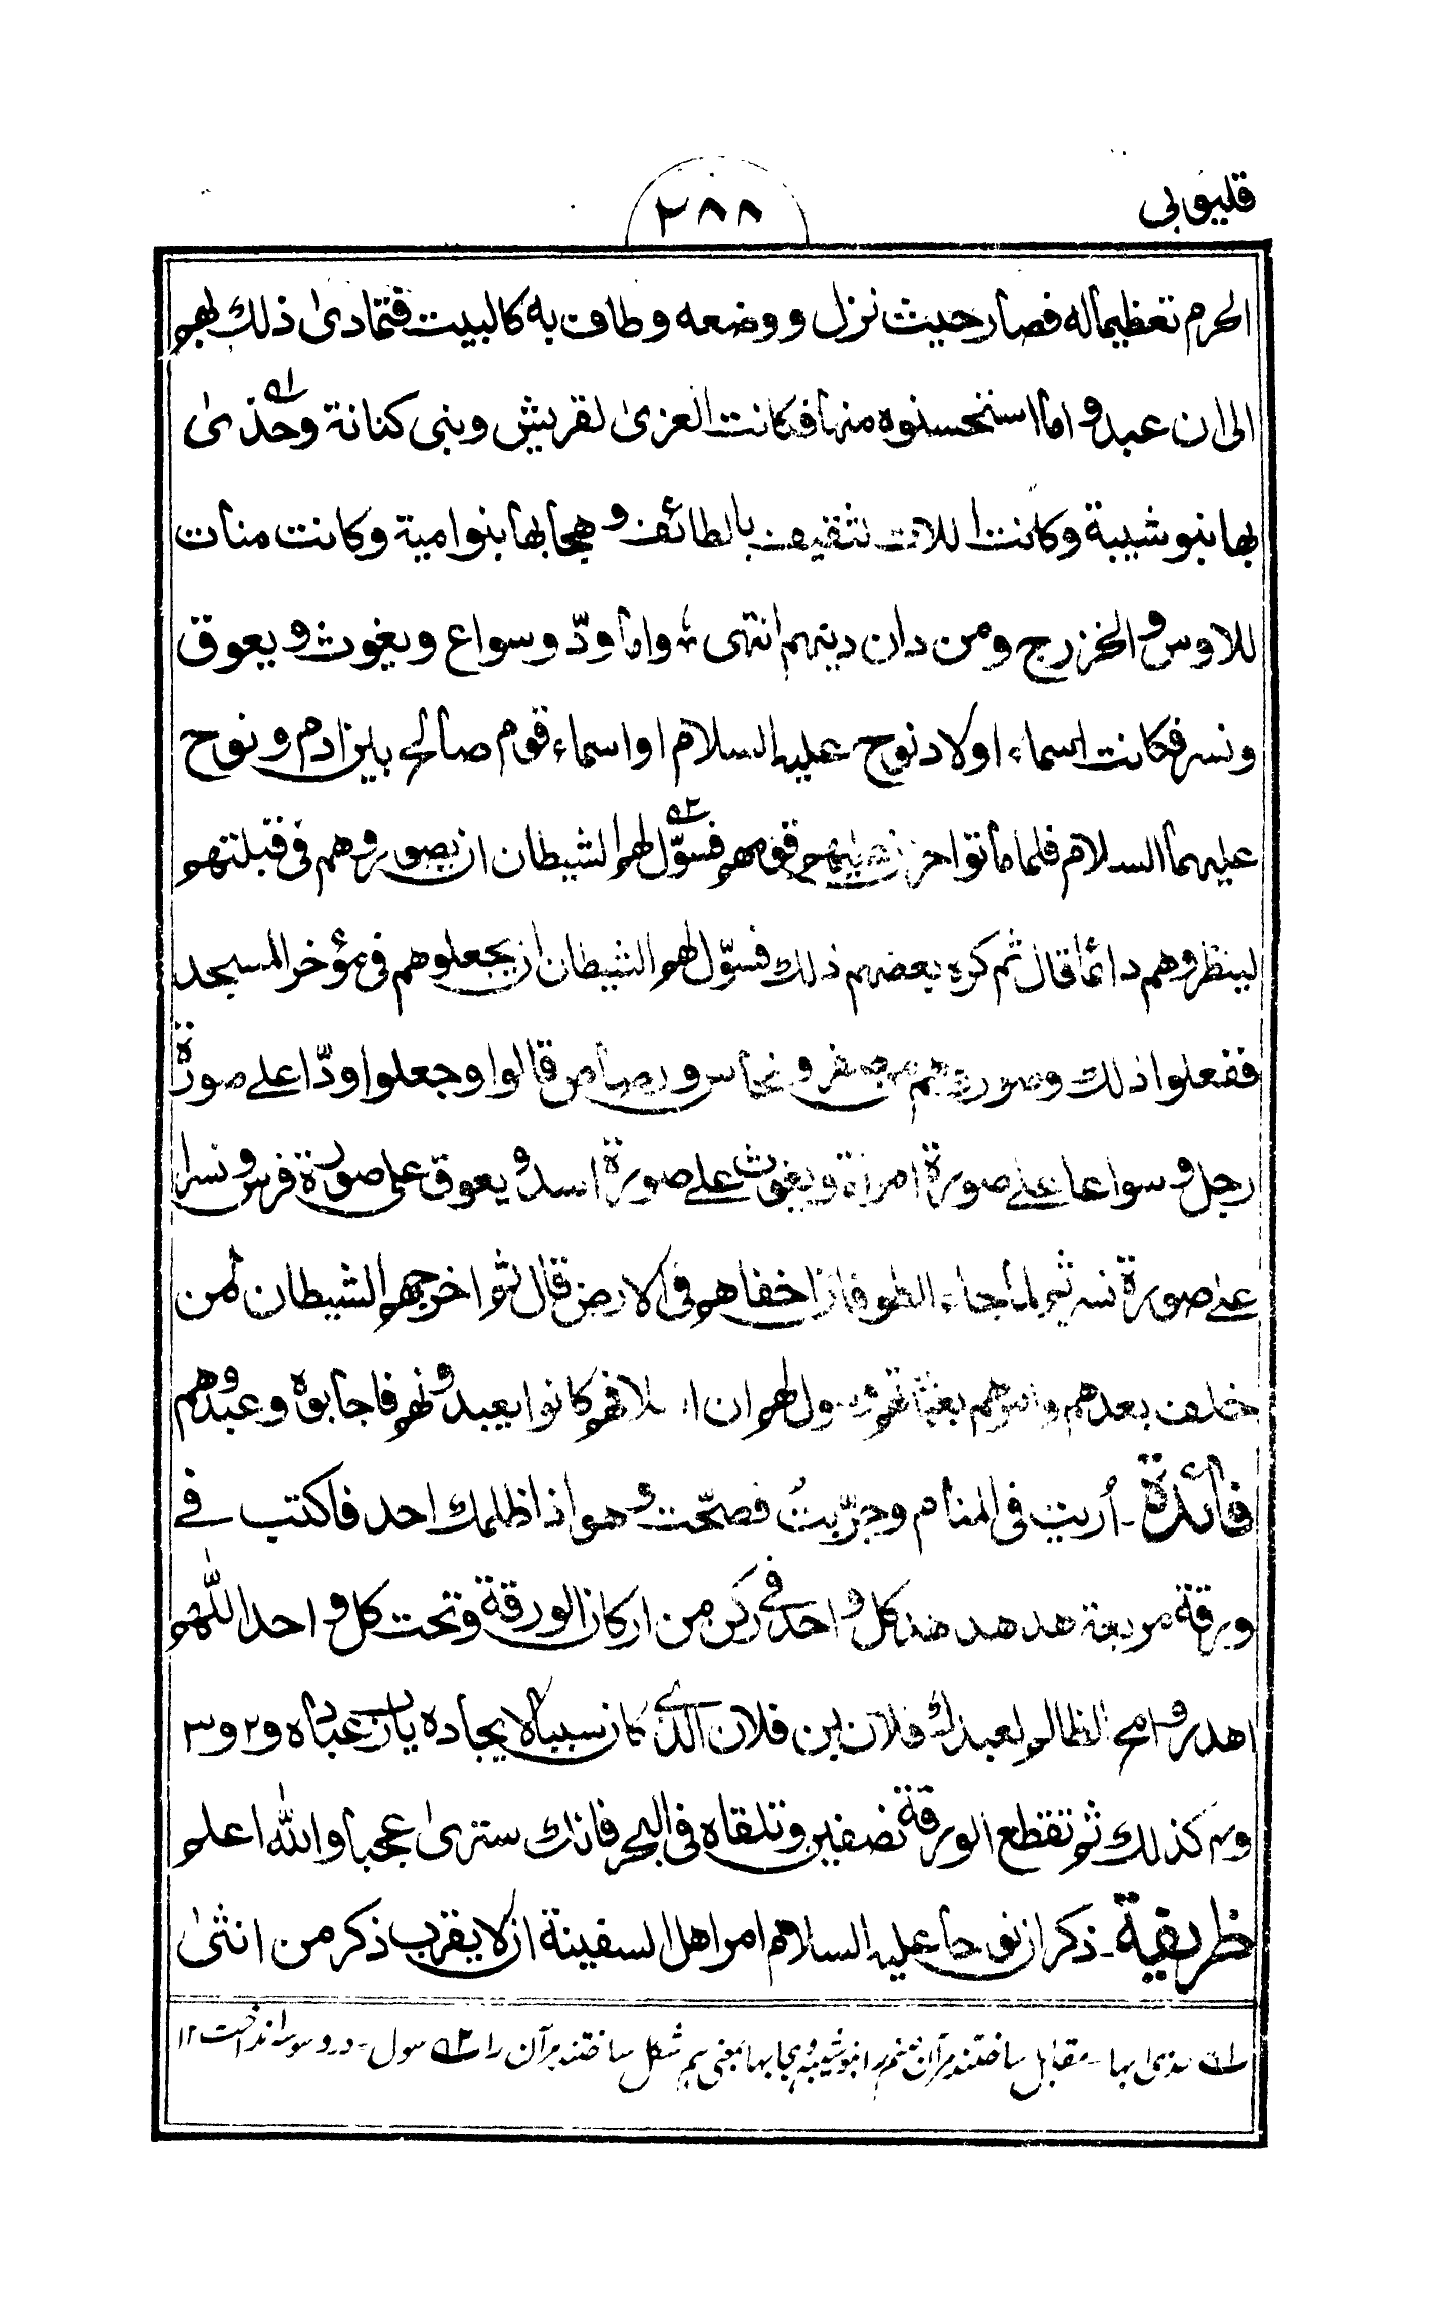 قليوبي
٢٨٨
الحرم تعظيماله فصار حيث نزل ووضعه وطاف به كالبيت فتمادىٰ ذلك لهم
الى ان عبدوا ما استحسنوه منها فكانت العزىٰ لقريش وبنى كنانة وحذىٰ
بها بنو شيبة وكانت اللات لثقيف بالطائف وهجابها بنو امية وكانت منات
للاوس والخزرج ومن دان دينهم انتهى واما ودّ وسواع ويغوث ويعوق
ونسر فكانت اسماء اولاد نوح عليه السلام او اسماء قوم صالح بين ادم ونوح
عليهما السلام فلما ماتوا حزن عليهم قومهم فسوّل لهم الشيطان ان يصوروهم فى قبلتهم
لينظروهم دائما قال ثم كره بعضهم ذلك فسوّل لهم الشيطان ان يجعلوهم فى مؤخر المسجد
ففعلوا ذلك وصورهم من صفر ونحاس ورصاص قالوا وجعلوا ودّا على صورة
رجل وسواعا على صورة امرأة ويغوث على صورة اسد ويعوق على صورة فرس ونسرا
على صورة نسر ثم لما جاء الطوفان اخفاهم فى الارض قال ثم اخرجهم الشيطان لمن
خلف بعدهم وسول لهم ان اسلافهم كانوا يعبدونهم فاجابوه وعبدوهم
فائدة ـ اُريت فى المنام وجرّبتُ فصحّت وهو اذا ظلمك احد فاكتب فے
ورقة مربعة هدهد هد كل واحد فى ركن من اركان الورقة وتحت كل واحد اللّٰهم
اهد وامح الظالم لعبدك فلان بن فلان الذے كان سببالايجاده يارب عباده و٢ و٣
و٤ كذلك ثم تقطع الورقة نصفين وتلقاه فى البحر فانك سترىٰ عجبا والله اعلم
ظريفة ـ ذكر ان نوحا عليه السلام امر اهل السفينة ان لا يقرب ذكر من انثىٰ
مقابل ساختند برآن صنم را بنو شيبه وهجابها بمعنى هم شكل ساختند برآن را ٥٢ سول ـ در وسوسه انداخت ١٢